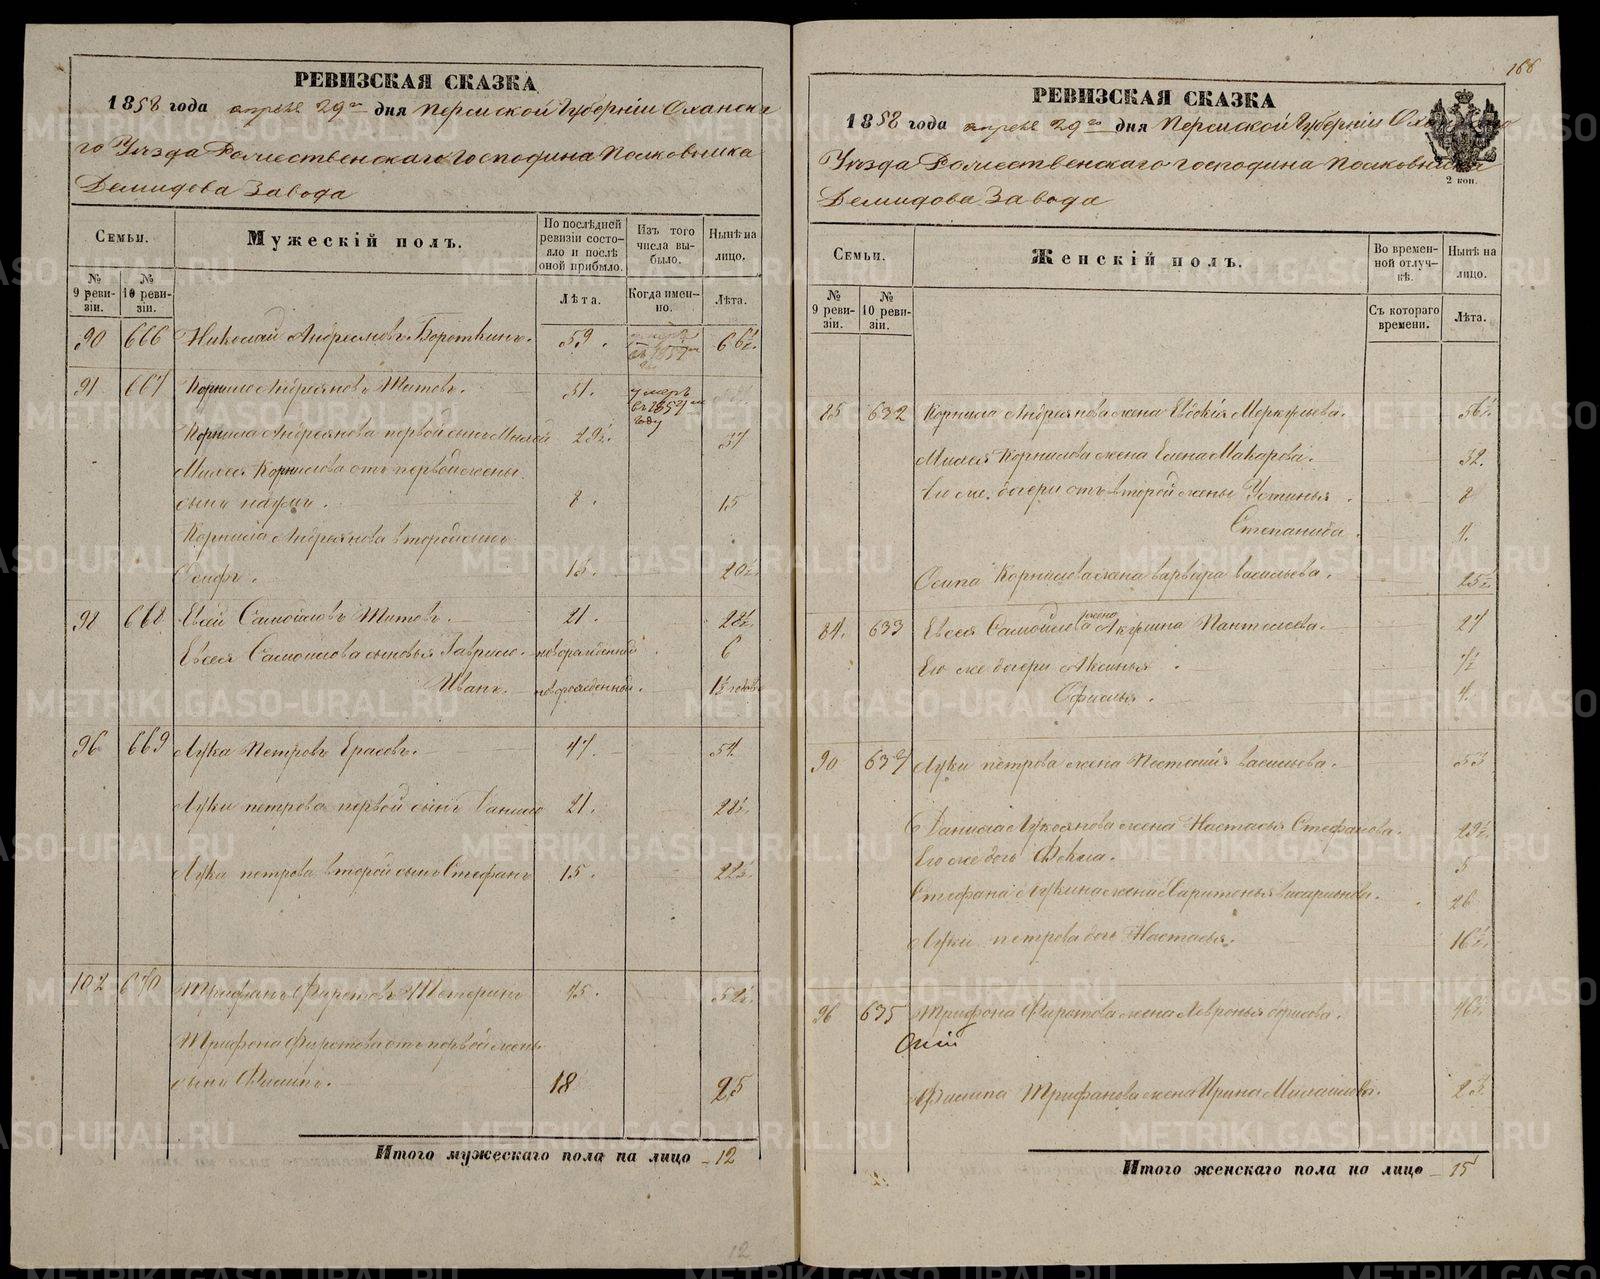 РЕВИЗСКАЯ СКАЗКА
1858 года апреля 29го дня Пермской Губернiи Оханска
го Уѣзда Рожественскаго Господина Полковника
Демидова Завода
Семьи.
Мужескiй полъ.
По послѣдней ревизiи состояло и послѣ оной прибыло.
Изъ того числа выбыло.
Нынѣ на лицо.
№ 9 ревизiи.
№ 10 ревизiи.
Лѣта.
Когда именно.
Лѣта.
90 666 Николай Андреяновъ Короткихъ. 59. 66½
91 667 Корнило Андреяновъ Титовъ. 51. умеръ въ 1857м году
Корнила Андреянова первой сынъ Михей 29½. 37
Михея Корнилова отъ первой жены
сынъ наумъ. 8. 15
Корнила Андреянова второй сынъ
Осифъ. 13. 20½
98 668 Евсей Самойловъ Титовъ. 21. 28½
Евсея Самойлова сыновья Гаврило новорожденной. 6
Иванъ. новорожденной. 1½ годовъ
96 669 Лука Петровъ Ерасовъ. 47. 54
Луки петрова первой сынъ Данило 21. 28½
Лука петрова второй сынъ Стефанъ 15. 22½
102 670 Трифанъ Фирсовъ Тетеринъ 45. 52½
Трифона Фирстова отъ первой жены
сынъ Филипъ. 18 25
Итого мужескаго пола на лицо 12
12
166
РЕВИЗСКАЯ СКАЗКА
1858 года апреля 29го дня Пермской Губернiи Оханскаго
Уѣзда Рожественскаго господина полковника
Демидова Завода
2 коп.
Семьи.
Женскiй полъ.
Во временной отлучкѣ.
Нынѣ на лицо.
№ 9 ревизiи.
№ 10 ревизiи.
Съ котораго времени.
Лѣта.
85 632 Корнила Андреянова жена Евдокия Меркурьева. 56½
Михея Корнилова жена Елена Макарова. 32.
Его же дочери отъ второй жены Устинья. 8
Степанида. 4.
Осипа Корнилова жена варвара васильева. 25½
84. 633 Евсея Самойлова жена Акулина Пантелеева. 27
Его же дочери Аксинья. 7½
Офимья. 4.
90 634 Луки петрова жена Настасия васильева. 53
Данила Лукоянова жена Настасья Стефанова. 29½
Его же дочь Фекла. 5
Стефана Лукина жена Харитонья 26
Луки петрова дочь Настасья. 16½
96 635 Трифона Фирстова жена Февронья борисова. 46½
Филипа Трифанова жена Ирина Михайлова. 23
Итого женскаго пола на лицо 15
METRIKI.GASO-URAL.RU